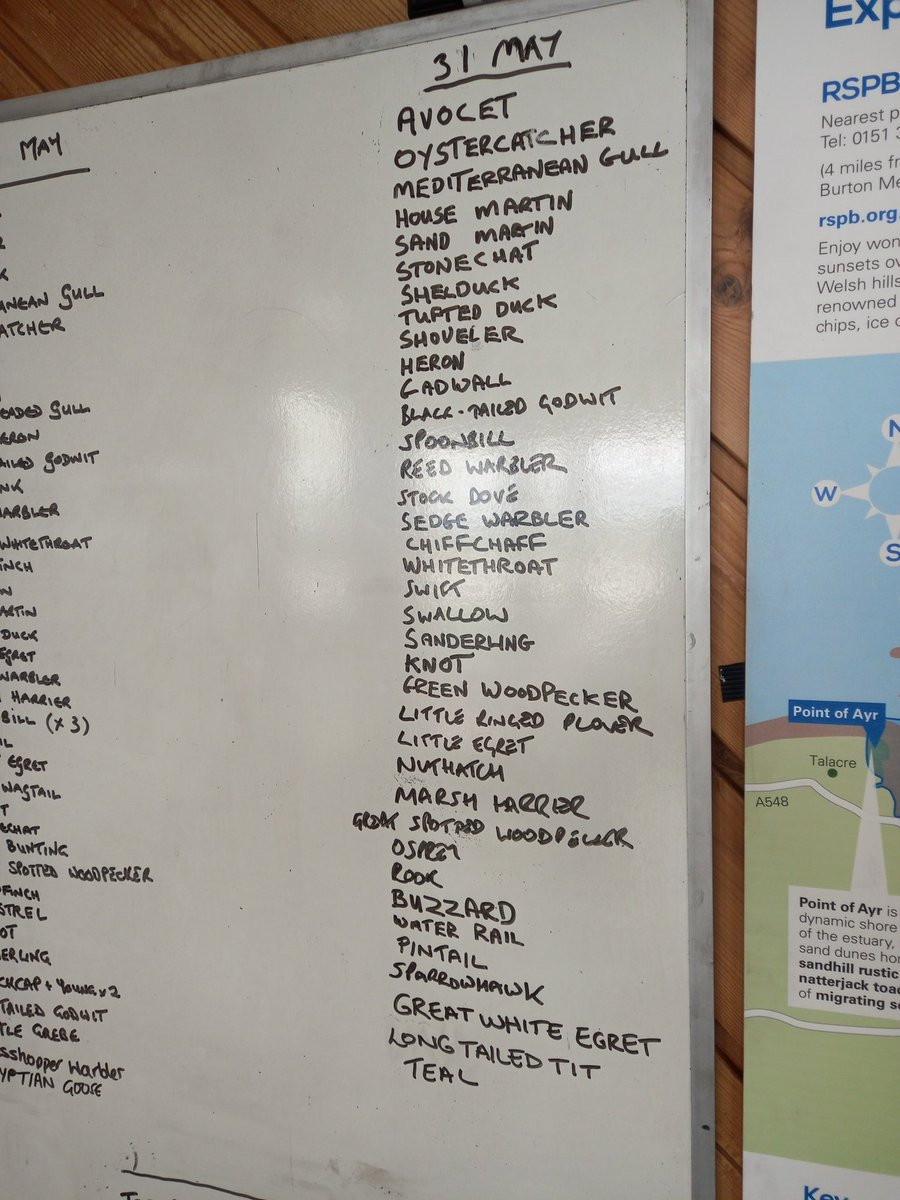 MAY
ANEAN GULL
ATCHER
EADED GULL
ERON
AILED GODWIT
NK
WARBLER
WHITETHROAT
INCH
W
ARTIN
DUCK
EGRET
WARBLER
HARRIER
BILL (x 3)
IL
EGRET
WAGTAIL
T
ECHAT
BUNTING
SPOTTED WOODPECKER
FINCH
STREL
OT
ERLING
CKCAP + YOUNG x 2
TAILED GODWIT
TLE GREBE
sshopper Warbler
YPTIAN GOOSE
31 MAY
AVOCET
OYSTERCATCHER
MEDITERRANEAN GULL
HOUSE MARTIN
SAND MARTIN
STONECHAT
SHELDUCK
TUFTED DUCK
SHOVELER
HERON
GADWALL
BLACK-TAILED GODWIT
SPOONBILL
REED WARBLER
STOCK DOVE
SEDGE WARBLER
CHIFFCHAFF
WHITETHROAT
SWIFT
SWALLOW
SANDERLING
KNOT
GREEN WOODPECKER
LITTLE RINGED PLOVER
LITTLE EGRET
NUTHATCH
MARSH HARRIER
GREAT SPOTTED WOODPECKER
OSPREY
ROOK
BUZZARD
WATER RAIL
PINTAIL
SPARROWHAWK
GREAT WHITE EGRET
LONG TAILED TIT
TEAL
Exp
RSPB
Nearest p
Tel: 0151 3
(4 miles fr
Burton Me
rspb.org.
Enjoy won
sunsets ov
Welsh hills
renowned
chips, ice c
N
W
S
Point of Ayr
Talacre
A548
Point of Ayr is
dynamic shore
of the estuary,
sand dunes hom
sandhill rustic
natterjack toad
of migrating se
Key